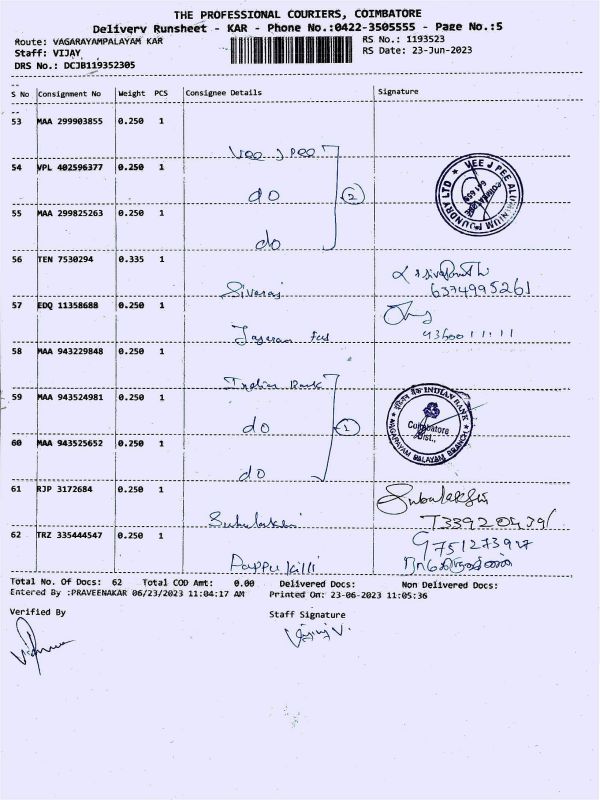 THE PROFESSIONAL COURIERS, COIMBATORE
Delivery Runsheet - KAR - Phone No.:0422-3505555 - Page No.:5
Route: VAGARAYAMPALAYAM KAR
RS No.: 1193523
Staff: VIJAY
RS Date: 23-Jun-2023
DRS No.: DCJB119352305
S No Consignment No Weight PCS Consignee Details Signature
53 MAA 299903855 0.250 1
Vee J Pee
54 VPL 402596377 0.250 1
do
2
VEE J PEE ALUMINIUM FOUNDRY LTD
55 MAA 299825263 0.250 1
do
56 TEN 7530294 0.335 1
Sivaraj
6374995261
57 EDQ 11358688 0.250 1
58 MAA 943229848 0.250 1
Indian Bank
59 MAA 943524981 0.250 1
do
1
INDIAN BANK
Coimbatore
Dist.,
VAGARAYAM PALAYAM BRANCH
60 MAA 943525652 0.250 1
do
61 RJP 3172684 0.250 1
Subulakshmi
62 TRZ 335444547 0.250 1
9751273927
Total No. Of Docs: 62 Total COD Amt: 0.00 Delivered Docs: Non Delivered Docs:
Entered By :PRAVEENAKAR 06/23/2023 11:04:17 AM Printed On: 23-06-2023 11:05:36
Verified By
Staff Signature